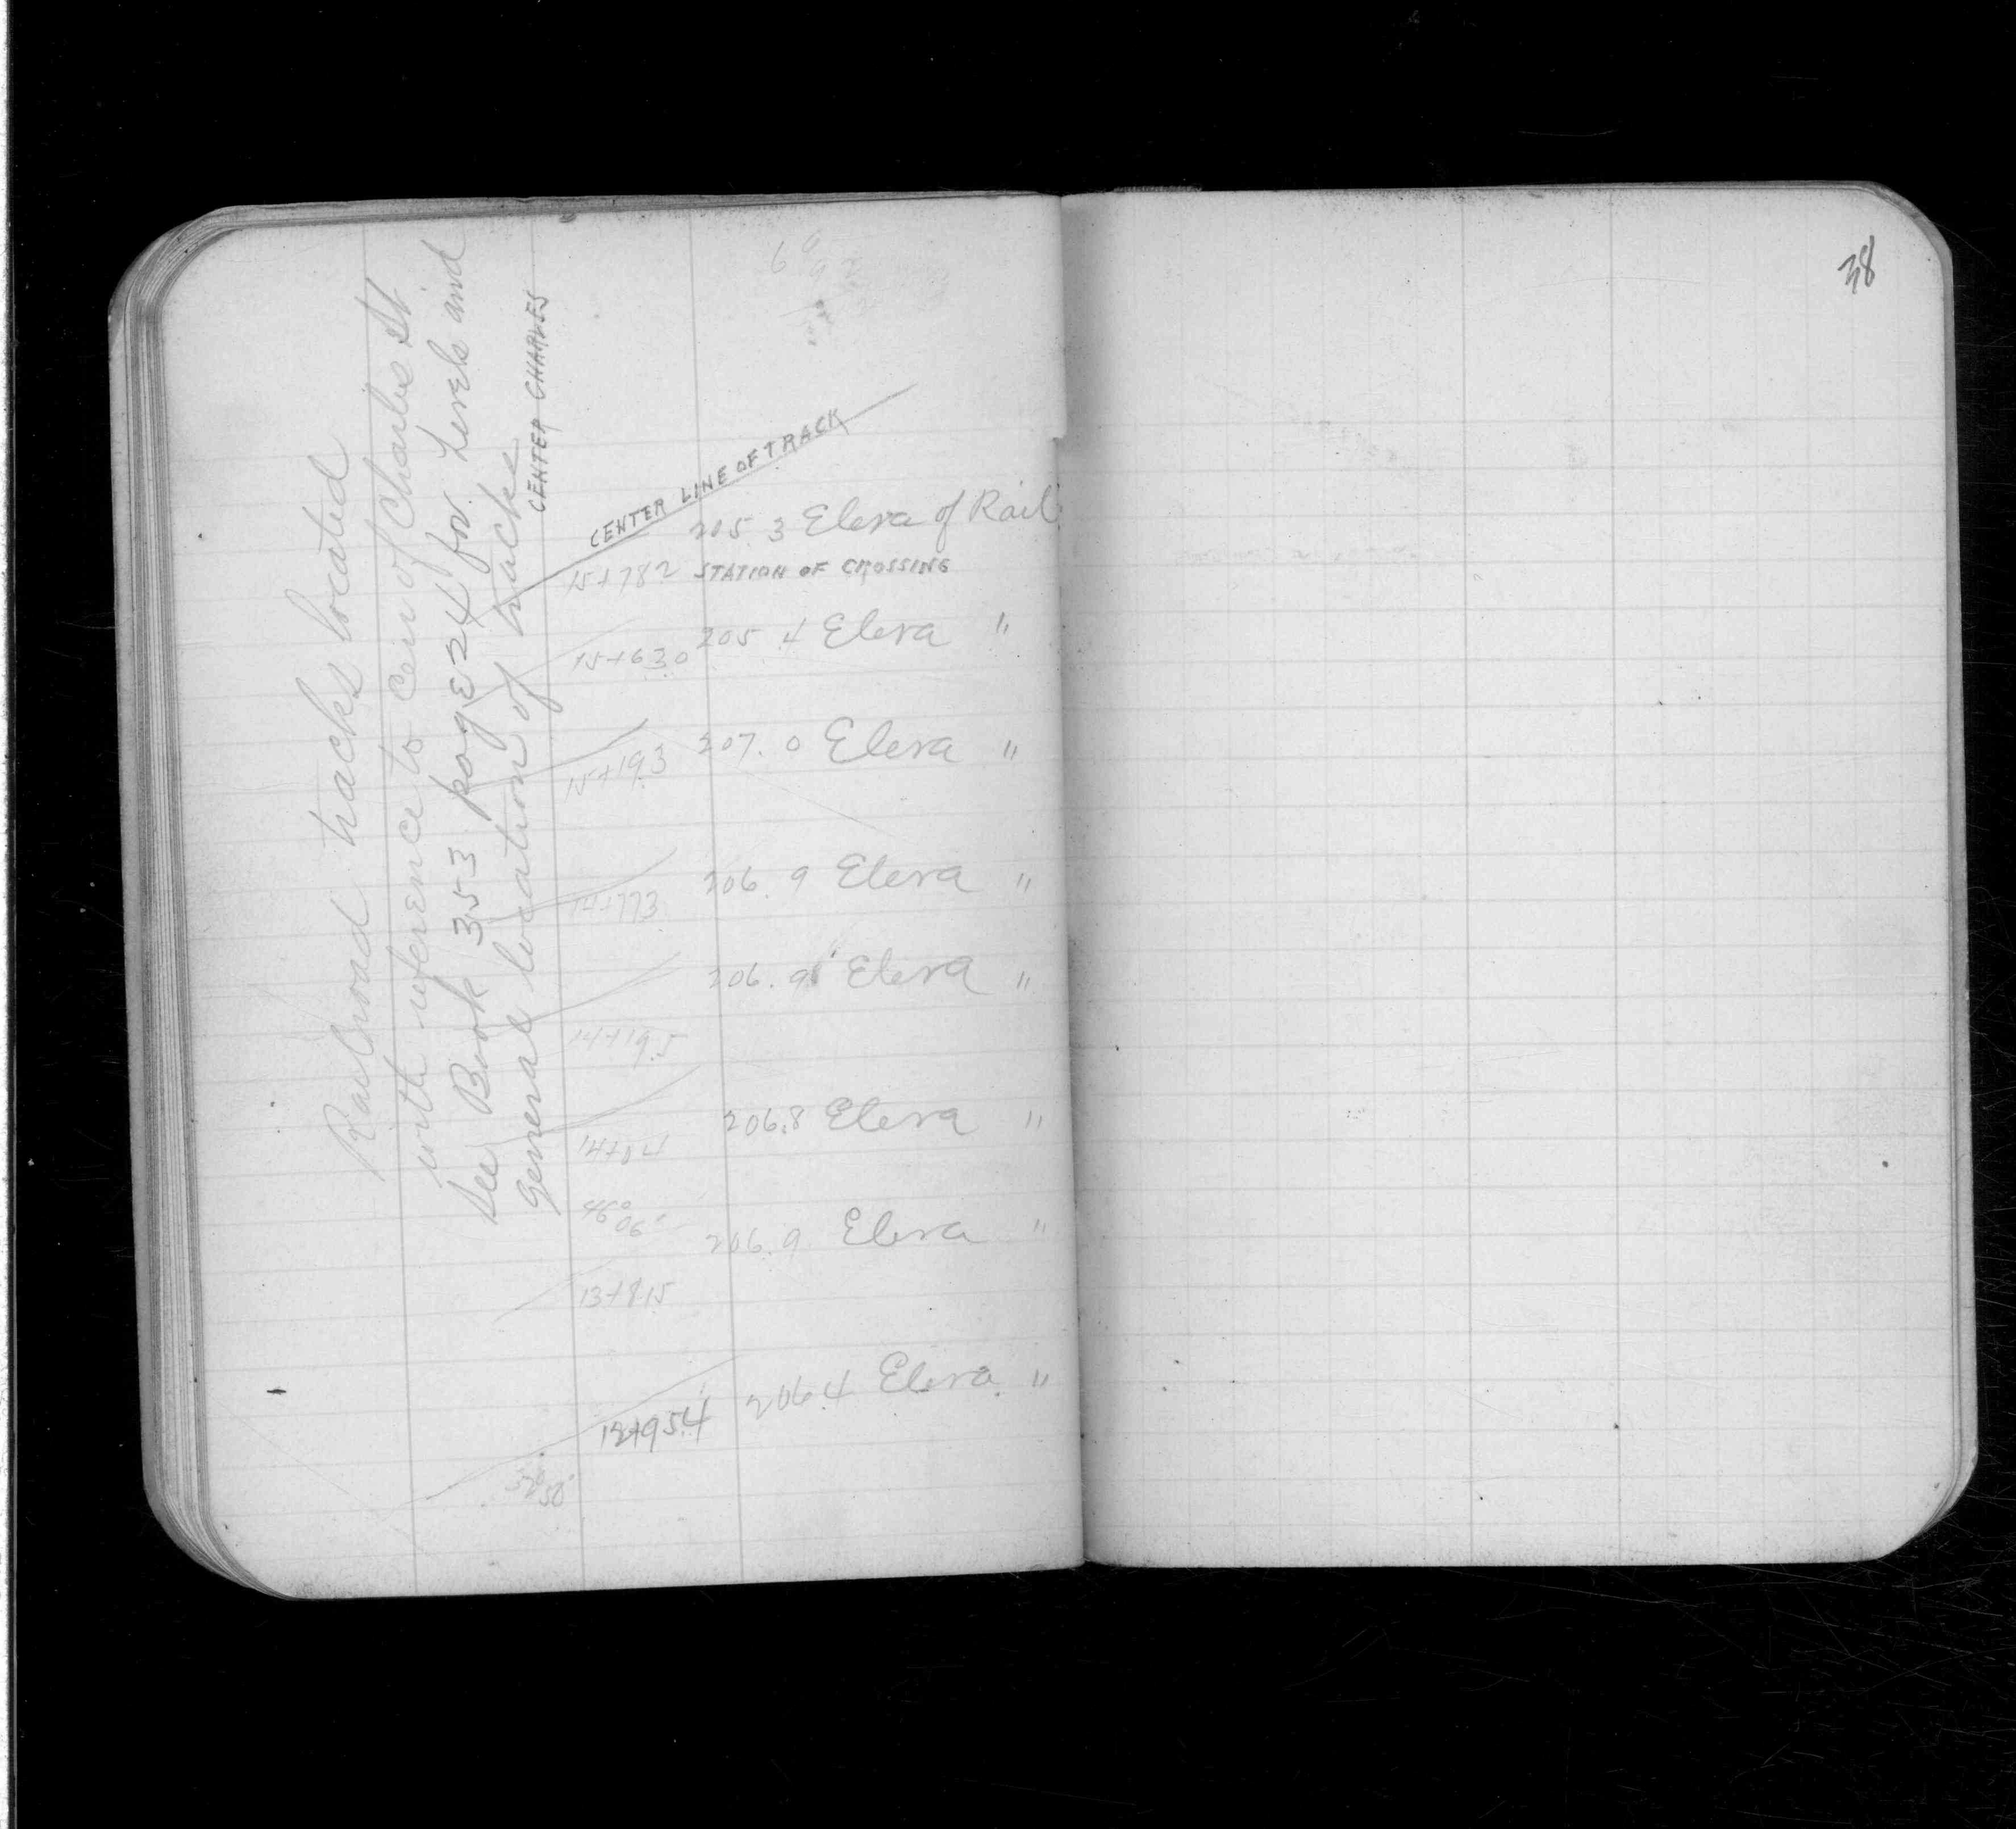 38
Railroad tracks located
with reference to Cen of Charles St.
See Book 353 pagE 24 for Levels and
general location of tracks
CENTER CHARLES
CENTER LINE OF TRACK
205.3 Eleva of Rail
15+782 STATION OF CROSSING
205.4 Eleva "
15+63.0
207.0 Eleva "
15+19.3
206.9 Eleva "
14+77.3
206.9 Eleva "
14+19.5
206.8 Eleva "
46° 06'
206.9 Eleva "
13+81.5
206.4 Eleva "
12+95.4
50'